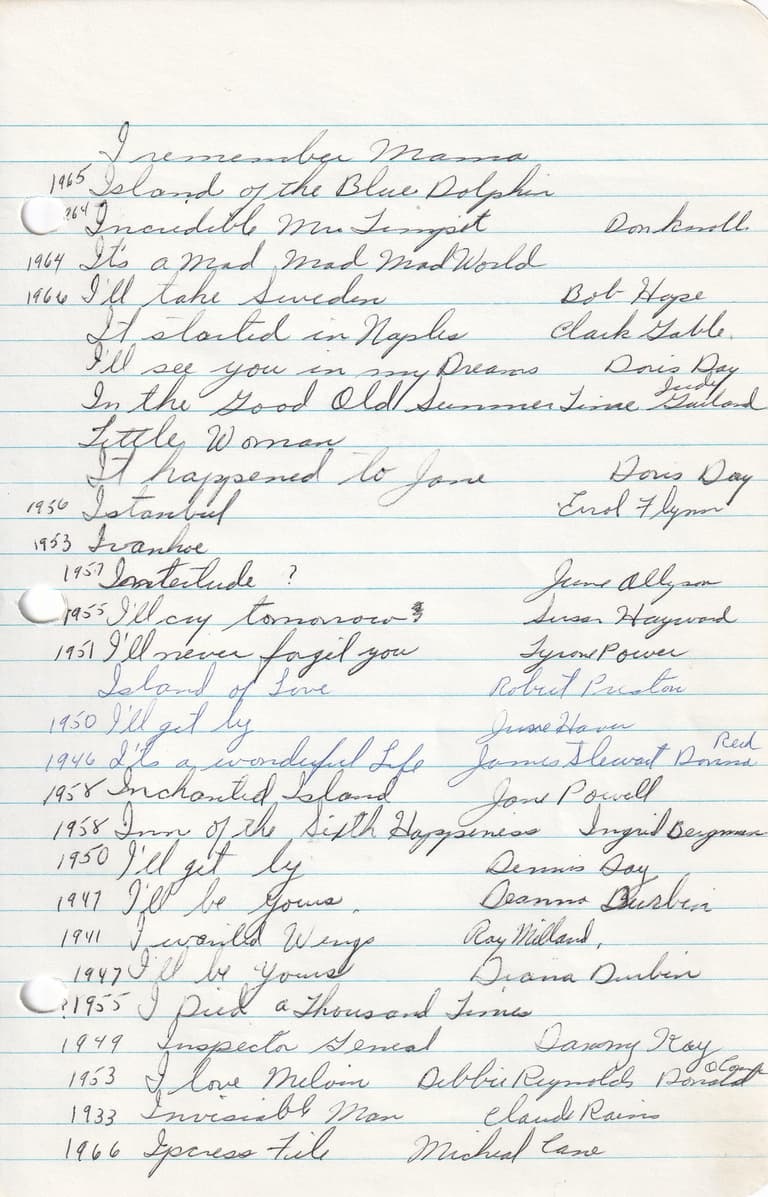 I remember Mama
1965 Island of the Blue Dolphin
?64 Incredible Mr. Limpet Don Knotts
1964 It's a Mad Mad Mad World
1966 I'll take Sweden Bob Hope
It started in Naples Clark Gable.
I'll see you in my Dreams Doris Day
In the Good Old Summer Time Judy Garland
Little Woman
It happened to Jane Doris Day
1956 Istanbul Errol Flynn
1953 Ivanhoe
1957 ? June Allyson
1955 I'll cry tomorrow Susan Hayward
1951 I'll never forget you Tyrone Power
Island of Love Robert Preston
1950 I'll get by June Haver
1946 It's a wonderful Life James Stewart Donna Reed
1958 Inchanted Island Jane Powell
1958 Inn of the Sixth Happiness Ingrid Bergman
1950 I'll get by Dennis Day
1947 I'll be Yours. Deanna Durbin
1941 I wanted Wings Ray Milland,
1947 I'll be Yours Diana Durbin
?1955 I Died a Thousand Times
1949 Inspector General Danny Kay
1953 I love Melvin Debbie Reynolds Donald
1933 Invisiable Man Claude Rains
1966 Ipcress File Micheal Cane